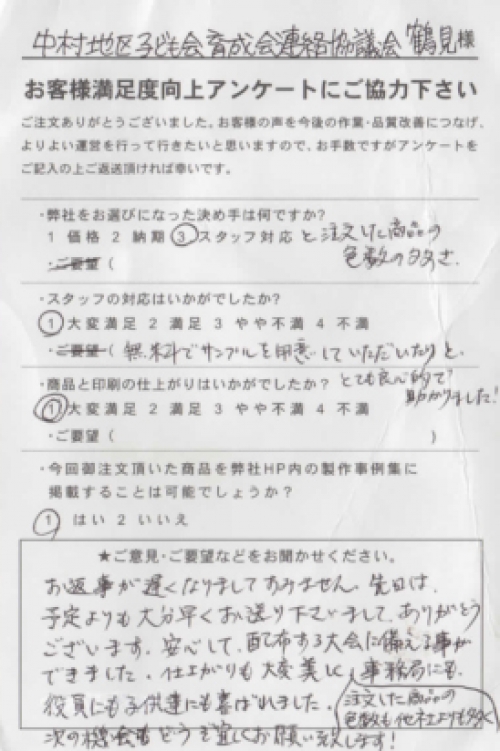 中村地区子ども会育成会連絡協議会 鶴見様
お客様満足度向上アンケートにご協力下さい
ご注文ありがとうございました。お客様の声を今後の作業・品質改善につなげ、
よりよい運営を行って行きたいと思いますので、お手数ですがアンケートを
ご記入の上ご返送頂ければ幸いです。
・弊社をお選びになった決め手は何ですか?
1 価格 2 納期 3 スタッフ対応 と注文した商品の
色数の多さ。
・ご要望 (
・スタッフの対応はいかがでしたか?
1 大変満足 2 満足 3 やや不満 4 不満
・ご要望 ( 無料でサンプルを用意していただいたりと、
とても良心的で
助かりました!
・商品と印刷の仕上がりはいかがでしたか?
1 大変満足 2 満足 3 やや不満 4 不満
・ご要望 ( )
・今回御注文頂いた商品を弊社HP内の製作事例集に
掲載することは可能でしょうか?
1 はい 2 いいえ
★ご意見・ご要望などをお聞かせください。
お返事が遅くなりましてすみません。先日は、
予定よりも大分早くお送り下さいまして、ありがとう
ございます。安心して、配布する大会に備える事が
できました。仕上がりも大変美しく、事務局にも、
役員にも子供達にも喜ばれました。
次の機会もどうぞ宜しくお願い致します!
注文した商品の
色数も他社よりも多く